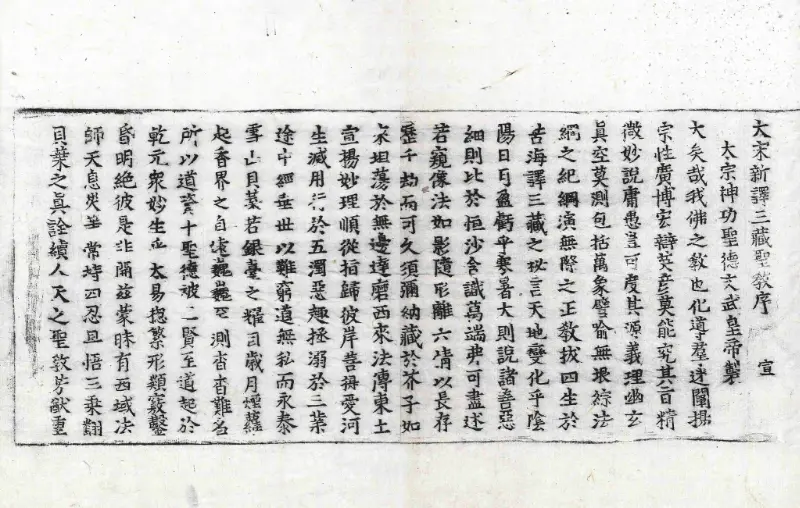 大宋新譯三藏聖教序　宣
太宗神功聖德文武皇帝製
大矣哉我佛之教也化導羣迷闡揚
宗性廣博宏辯英彥莫能究其旨精
微妙說庸愚豈可度其源義理幽玄
真空莫測包括萬象譬喻無垠綜法
網之紀綱演無際之正教拔四生於
苦海譯三藏之秘言天地變化乎陰
陽日月盈虧乎寒暑大則說諸善惡
細則比於恒沙含識萬端弗可盡述
若窺像法如影隨形離六情以長存
歷千劫而可久須彌納藏於芥子如
來坦蕩於無邊達磨西來法傳東土
宣揚妙理順從指歸彼岸菩提愛河
生滅用行於五濁惡趣拯溺於三業
途中經垂世以難窮道無私而永泰
雪山貝葉若銀臺之耀目歲月煙蘿
起香界之自遠巍巍罕測杳杳難名
所以道資十聖德被二賢至道起於
乾元眾妙生乎太易揔繁形類竅鑿
昏明絕彼是非開茲蒙昧有西域法
師天息災等常持四忍且悟三乘翻
貝葉之真詮續人天之聖教芳猷重